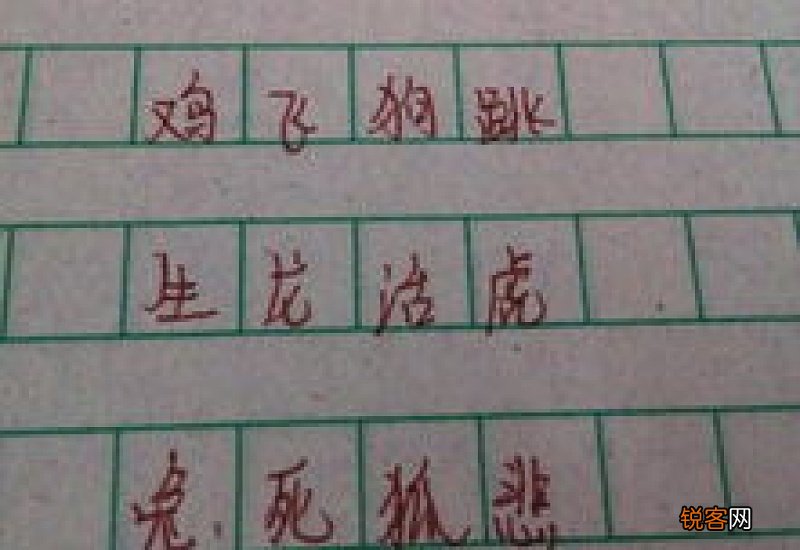 鸡飞狗跳
生龙活虎
兔死狐悲
锐客网